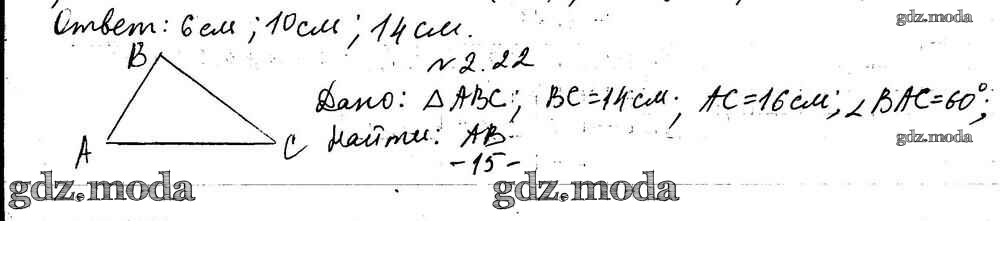 Ответ: 6 см; 10 см; 14 см.
gdz.moda
B
№ 2.22
Дано: △ABC; BC=14 см; AC=16 см; ∠BAC=60°;
A
C
Найти: AB.
gdz.moda
-15-
gdz.moda
gdz.moda